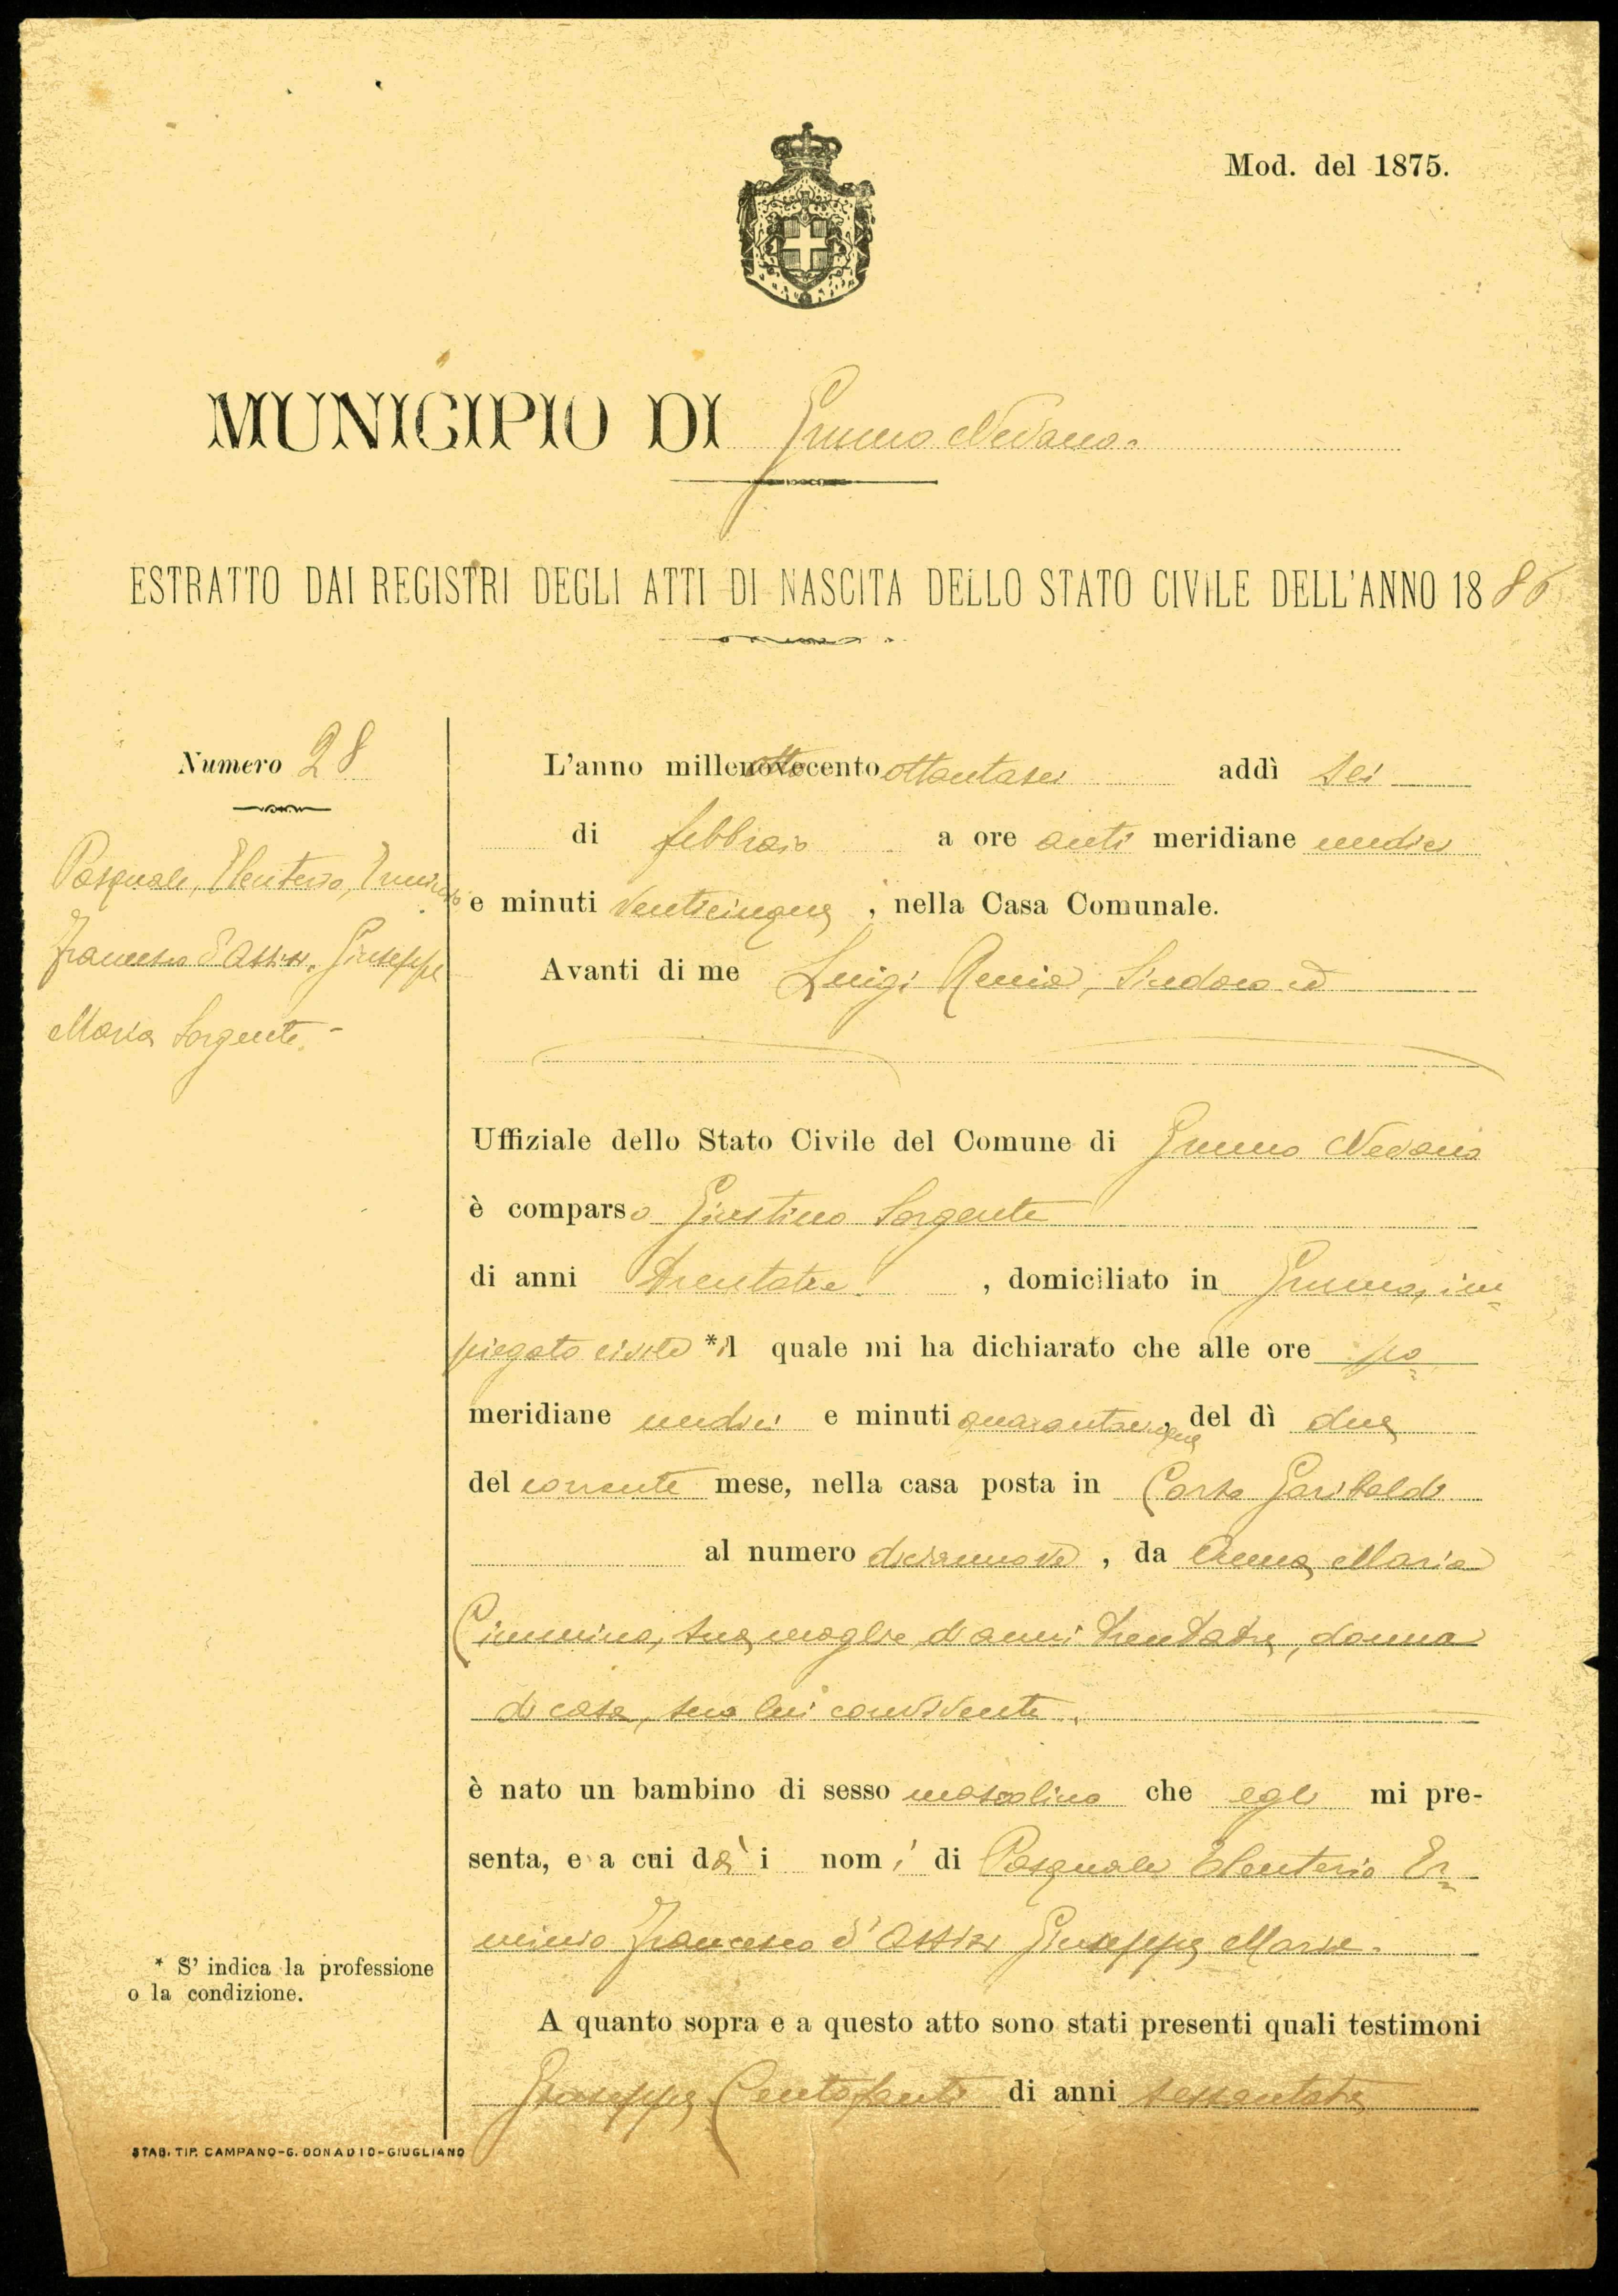 Mod. del 1875.
MUNICIPIO DI Grumo Nevano
ESTRATTO DAI REGISTRI DEGLI ATTI DI NASCITA DELLO STATO CIVILE DELL'ANNO 1886
Numero 28
Pasquale, Eleuterio, Erminio
Francesco d'Assisi, Giuseppe
Maria Sorgente.-
L'anno milleottocento ottantasei addì sei
di febbraio a ore anti meridiane undici
e minuti venticinque, nella Casa Comunale.
Avanti di me Luigi Sindaco ed
Uffiziale dello Stato Civile del Comune di Grumo Nevano
è comparso Giustino Sorgente
di anni trentatre, domiciliato in Grumo, im=
piegato civile *il quale mi ha dichiarato che alle ore po=
meridiane undici e minuti quarantacinque del dì due
del corrente mese, nella casa posta in Corso Garibaldi
al numero diciannove, da Anna Maria
Cimmino, sua moglie, di anni trentatre, donna
di casa, seco lui convivente.
è nato un bambino di sesso mascolino che egli mi pre-
senta, e a cui dà i nomi di Pasquale Eleuterio Er=
minio Francesco d'Assisi Giuseppe Maria.
* S' indica la professione
o la condizione.
A quanto sopra e a questo atto sono stati presenti quali testimoni
Giuseppe Centofanti di anni sessantatre
STAB. TIP. CAMPANO-G. DONADIO-GIUGLIANO